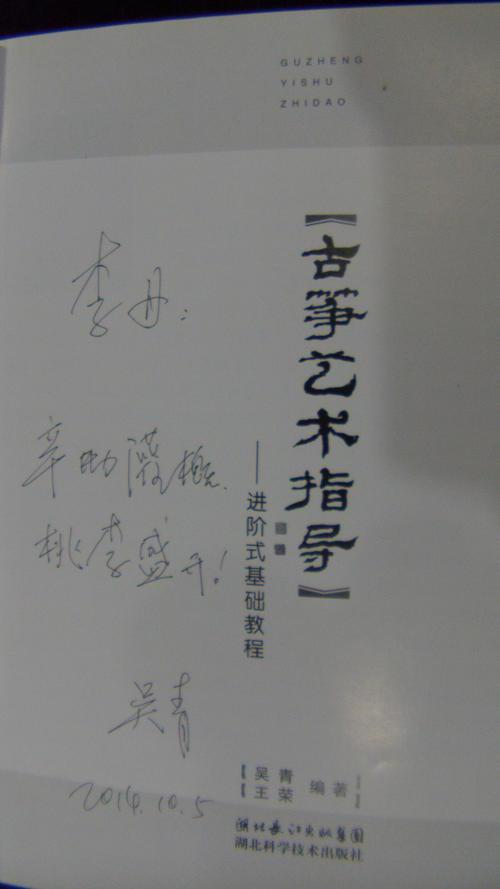 GUZHENG
YISHU
ZHIDAO
【古筝艺术指导】
——进阶式基础教程
李丹：
辛勤灌溉、
桃李盛开！
吴青
2014.10.5
【吴青 编著】
【王荣
湖北长江出版集团
湖北科学技术出版社